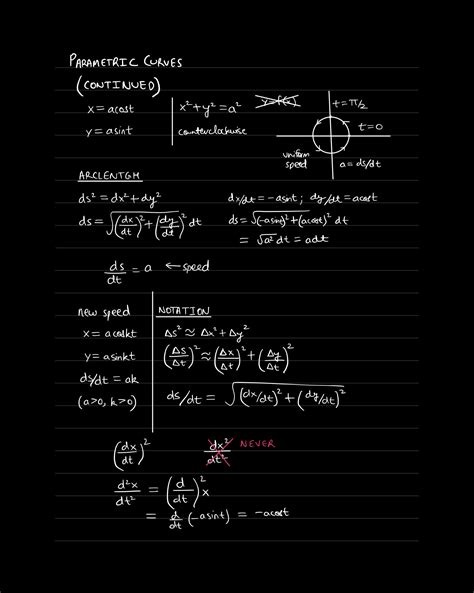 PARAMETRIC CURVES
(CONTINUED)
x = acost
x² + y² = a²
y = f(x)
t = π/2
y = asint
counterclockwise
t = 0
uniform speed
a = ds/dt
ARCLENTGH
ds² = dx² + dy²
dx/dt = -asint ; dy/dt = acost
ds = √((dx/dt)² + (dy/dt)²) dt
ds = √((-asint)² + (acost)²) dt
= √a² dt = adt
ds/dt = a ← speed
new speed
x = acoskt
y = asinkt
ds/dt = ak
(a>0, k>0)
NOTATION
Δs² ≈ Δx² + Δy²
(Δs/Δt)² ≈ (Δx/Δt)² + (Δy/Δt)²
ds/dt = √((dx/dt)² + (dy/dt)²)
(dx/dt)²
dx²/dt² NEVER
d²x/dt² = (d/dt)² x
= d/dt (-asint) = -acost